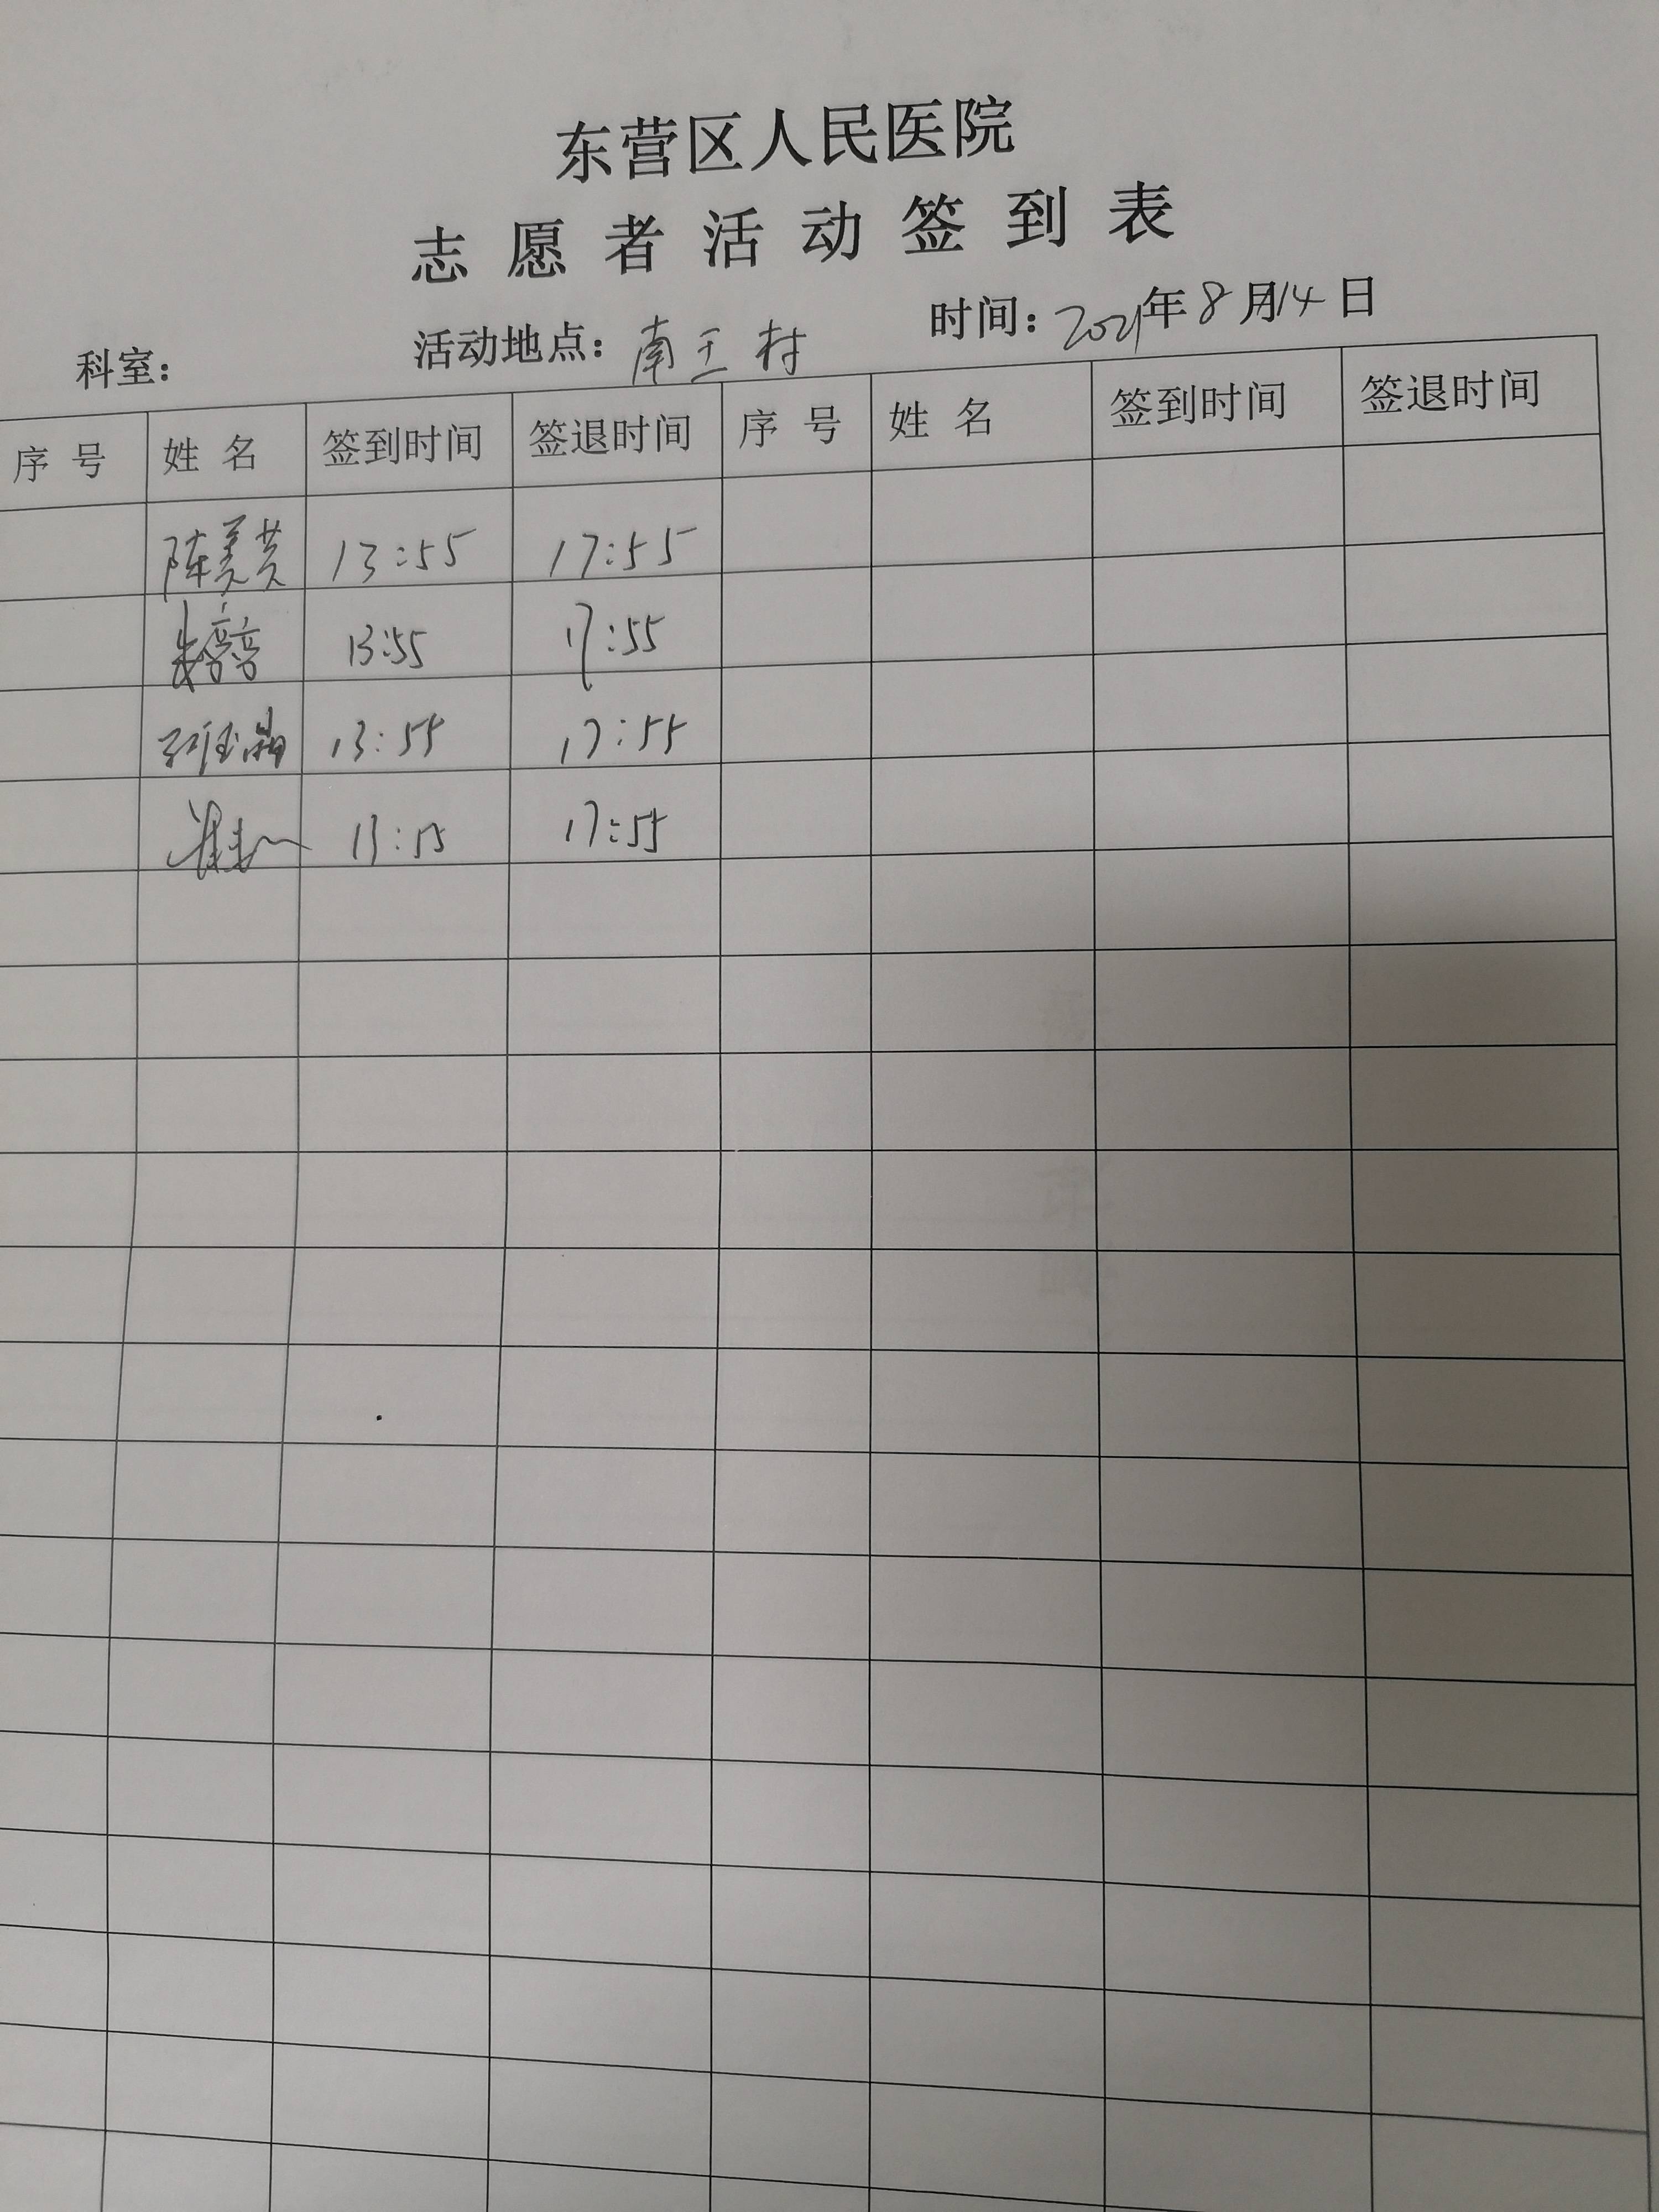 东营区人民医院
志愿者活动签到表
科室： 活动地点：南王村 时间：2021年8月14日
序号 姓名 签到时间 签退时间 序号 姓名 签到时间 签退时间
陈美芸 13:55 17:55
13:55 17:55
13:55 17:55
17:55